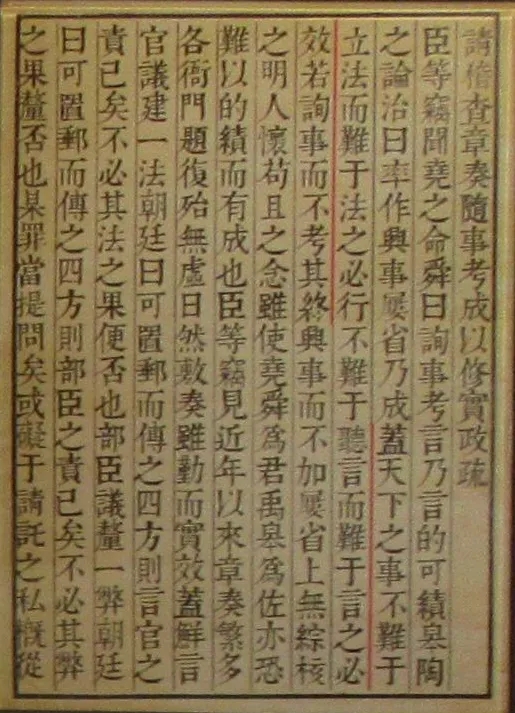 請稽查章奏隨事考成以修實政疏
臣等竊聞堯之命舜曰詢事考言乃言的可績皋陶
之論治曰率作興事屢省乃成蓋天下之事不難于
立法而難于法之必行不難于聽言而難于言之必
效若詢事而不考其終興事而不加屢省上無綜核
之明人懷苟且之念雖使堯舜爲君禹皋爲佐亦恐
難以的績而有成也臣等竊見近年以來章奏繁多
各衙門題復殆無虛日然敷奏雖勤而實效蓋鮮言
官議建一法朝廷曰可置郵而傳之四方則言官之
責已矣不必其法之果便否也部臣議釐一弊朝廷
曰可置郵而傳之四方則部臣之責已矣不必其弊
之果釐否也某罪當提問矣或礙于請託之私概從